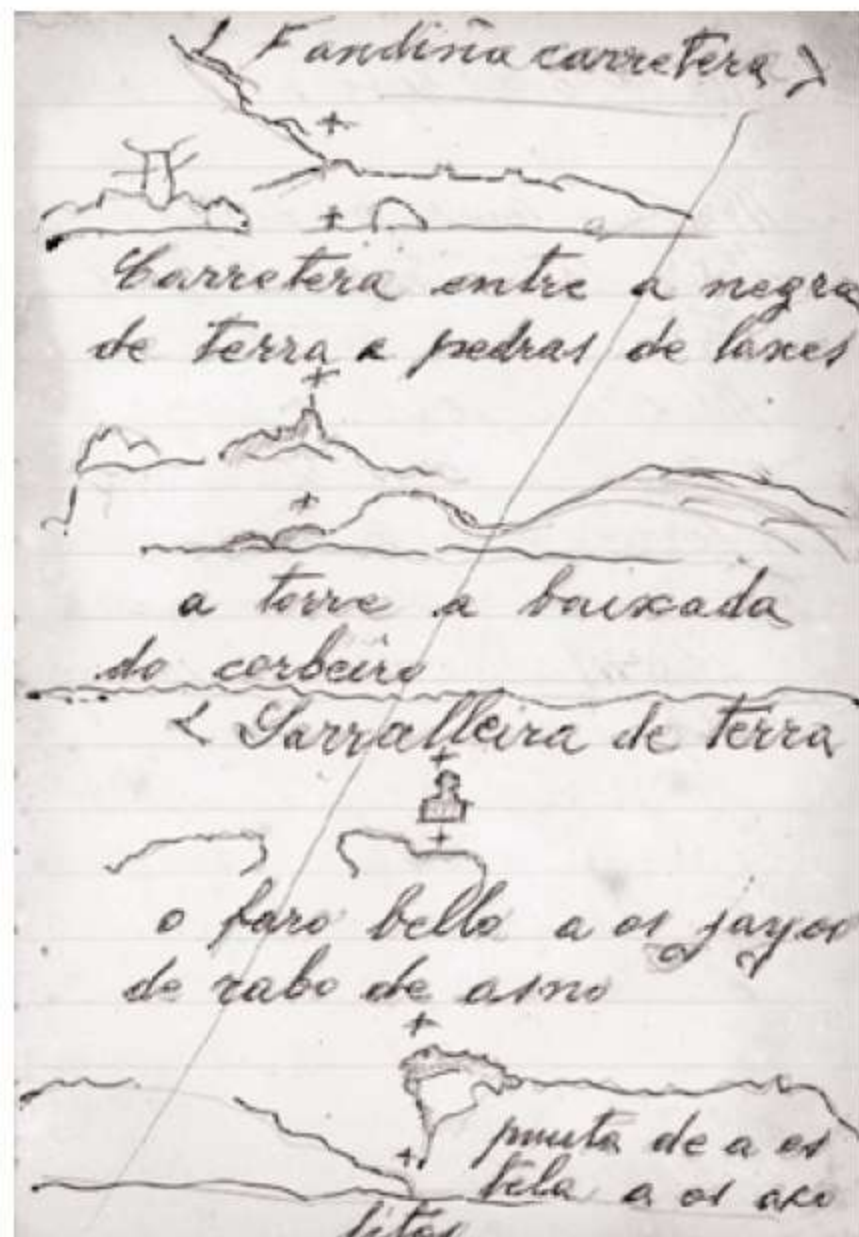 < Fandiña carretera >
Carretera entre a negra
de terra a pedras de laxes
a torre a baixada
do corbeiro
< Sarralleira de terra
o faro bello a os jayos
de rabo de asno
punta de a os
bela a os axo
litos